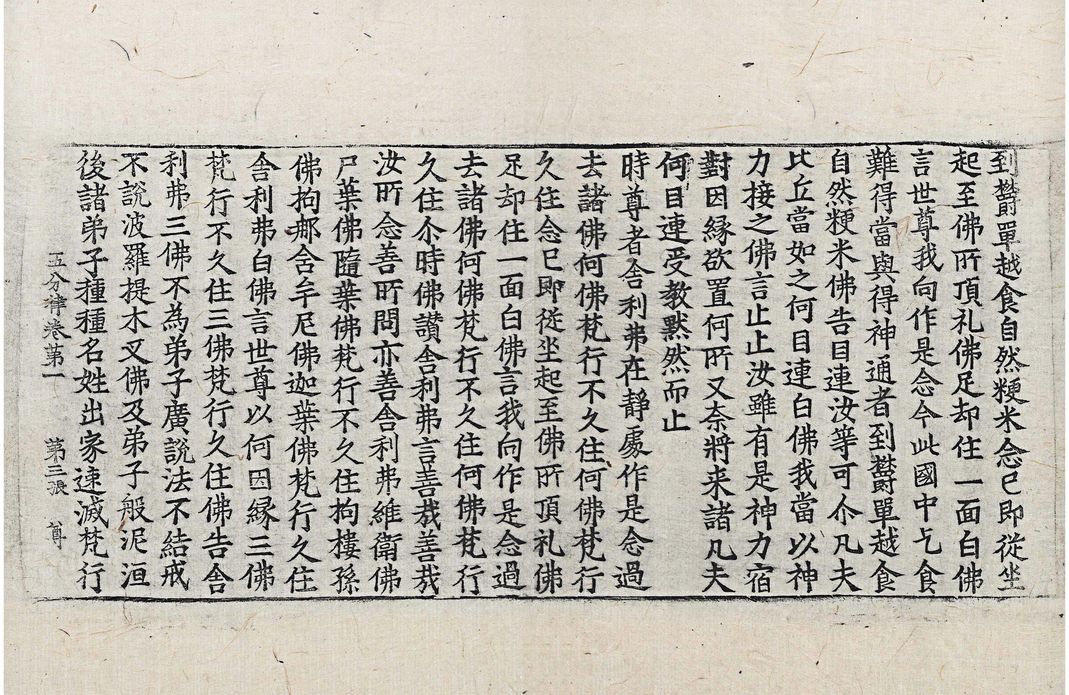 到欝單越食自然粳米念已即從坐
起至佛所頂礼佛足却住一面白佛
言世尊我向作是念今此國中乞食
難得當與得神通者到欝單越食
自然粳米佛告目連汝等可尒凡夫
比丘當如之何目連白佛我當以神
力接之佛言止止汝雖有是神力宿
對因縁欲置何所又奈將来諸凡夫
何目連受教默然而止
時尊者舍利弗在靜處作是念過
去諸佛何佛梵行不久住何佛梵行
久住念已即從坐起至佛所頂礼佛
足却住一面白佛言我向作是念過
去諸佛何佛梵行不久住何佛梵行
久住尒時佛讚舍利弗言善哉善哉
汝所念善所問亦善舍利弗維衛佛
尸葉佛隨葉佛梵行不久住拘樓孫
佛拘那舍牟尼佛迦葉佛梵行久住
舍利弗白佛言世尊以何因縁三佛
梵行不久住三佛梵行久住佛告舍
利弗三佛不為弟子廣說法不結戒
不說波羅提木叉佛及弟子般泥洹
後諸弟子種種名姓出家速滅梵行
五分律卷第一 第三張 尊